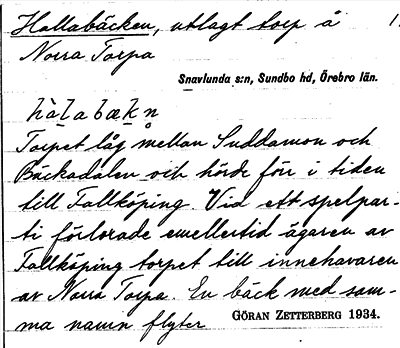 Hallabäcken, utlagt torp å 1
Norra Torpa
Snavlunda s:n, Sundbo hd, Örebro län.
hàlabækn
Torpet låg mellan Suddamon och
Bäckadalen och hörde förr i tiden
till Tallköping. Vid ett spelpar-
ti förlorade emellertid ägaren av
Tallköping torpet till innehavaren
av Norra Torpa. En bäck med sam-
ma namn flyter
GÖRAN ZETTERBERG 1934.